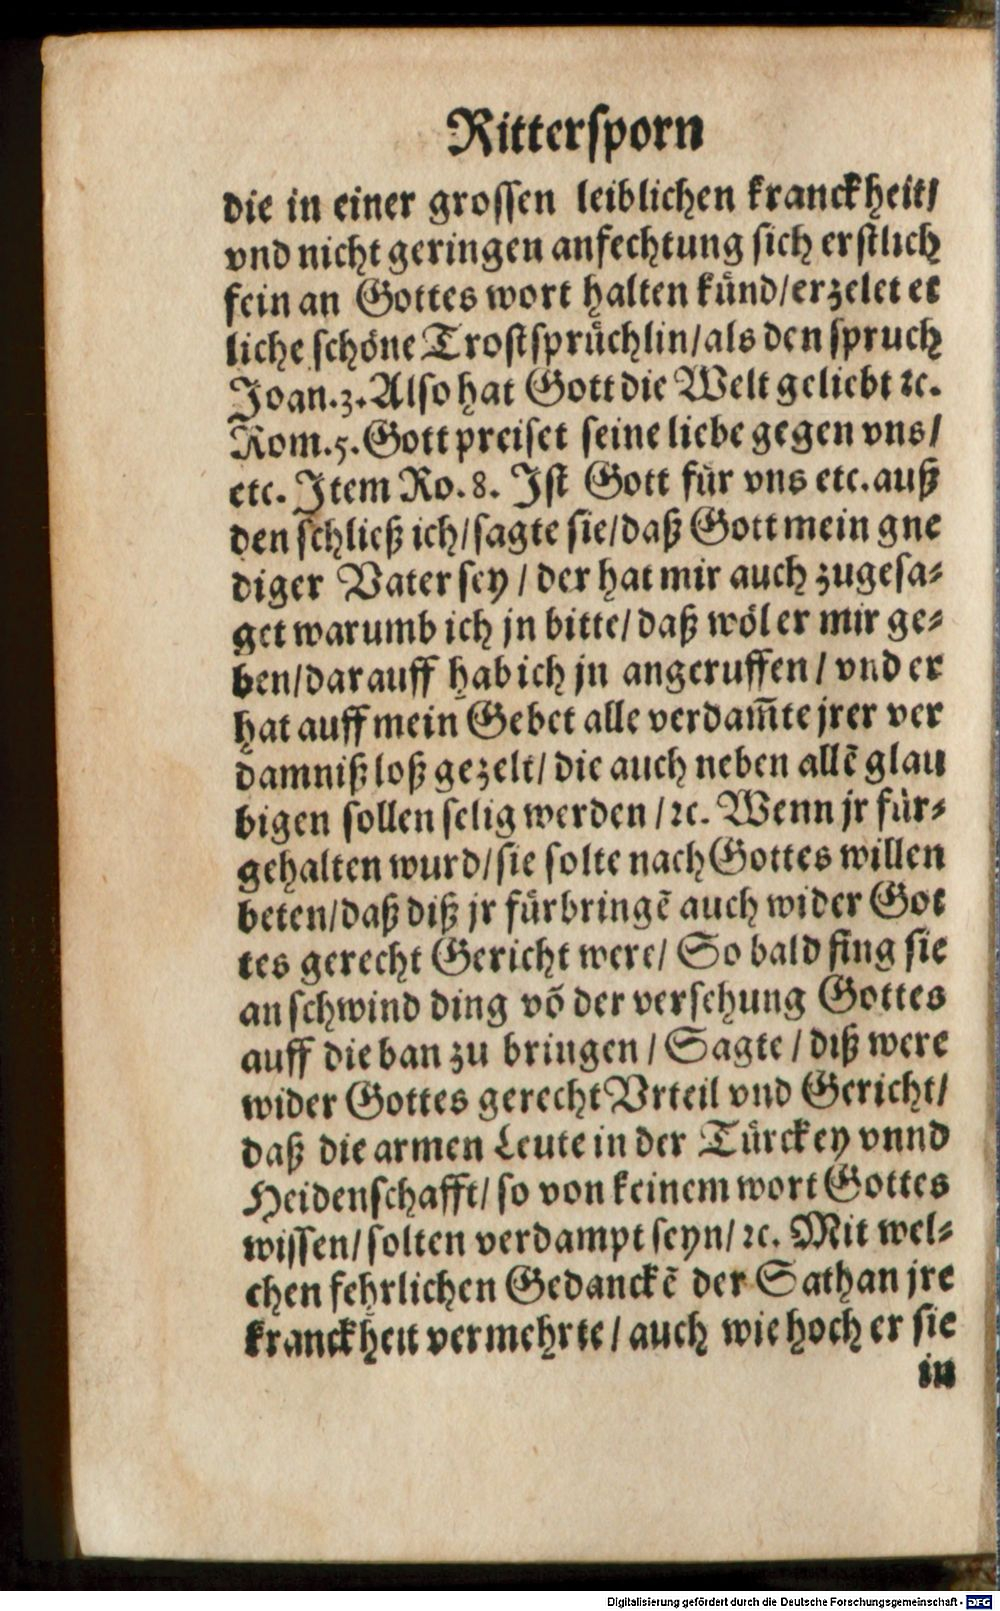 Ritterſporn
die in einer groſſen leiblichen kranckheit/
vnd nicht geringen anfechtung ſich erſtlich
fein an Gottes wort halten künd/erzelet et
liche ſchöne Troſtſprüchlin/als den ſpruch
Joan.3.Alſo hat Gott die Welt geliebt ꝛc.
Rom.5.Gott preiſet ſeine liebe gegen vns/
etc. Item Ro.8. Iſt Gott für vns etc.auß
den ſchließ ich/ſagte ſie/daß Gott mein gne
diger Vater ſey / der hat mir auch zugeſa⸗
get warumb ich jn bitte/daß wöl er mir ge⸗
ben/darauff hab ich jn angeruffen / vnd er
hat auff mein Gebet alle verdam̃te jrer ver
damniß loß gezelt/ die auch neben allẽ glau
bigen ſollen ſelig werden /ꝛc. Wenn jr für⸗
gehalten wurd/ſie ſolte nach Gottes willen
beten/daß diß jr fürbringẽ auch wider Got
tes gerecht Gericht were/ So bald fing ſie
an ſchwind ding võ der verſehung Gottes
auff die ban zu bringen / Sagte / diß were
wider Gottes gerecht Vrteil vnd Gericht/
daß die armen Leute in der Türckey vnnd
Heidenſchafft/ ſo von keinem wort Gottes
wiſſen/ſolten verdampt ſeyn/ꝛc. Mit wel⸗
chen fehrlichen Gedanckẽ der Sathan jre
kranckheit vermehrte / auch wie hoch er ſie
in
Digitalisierung gefördert durch die Deutsche Forschungsgemeinschaft - DFG